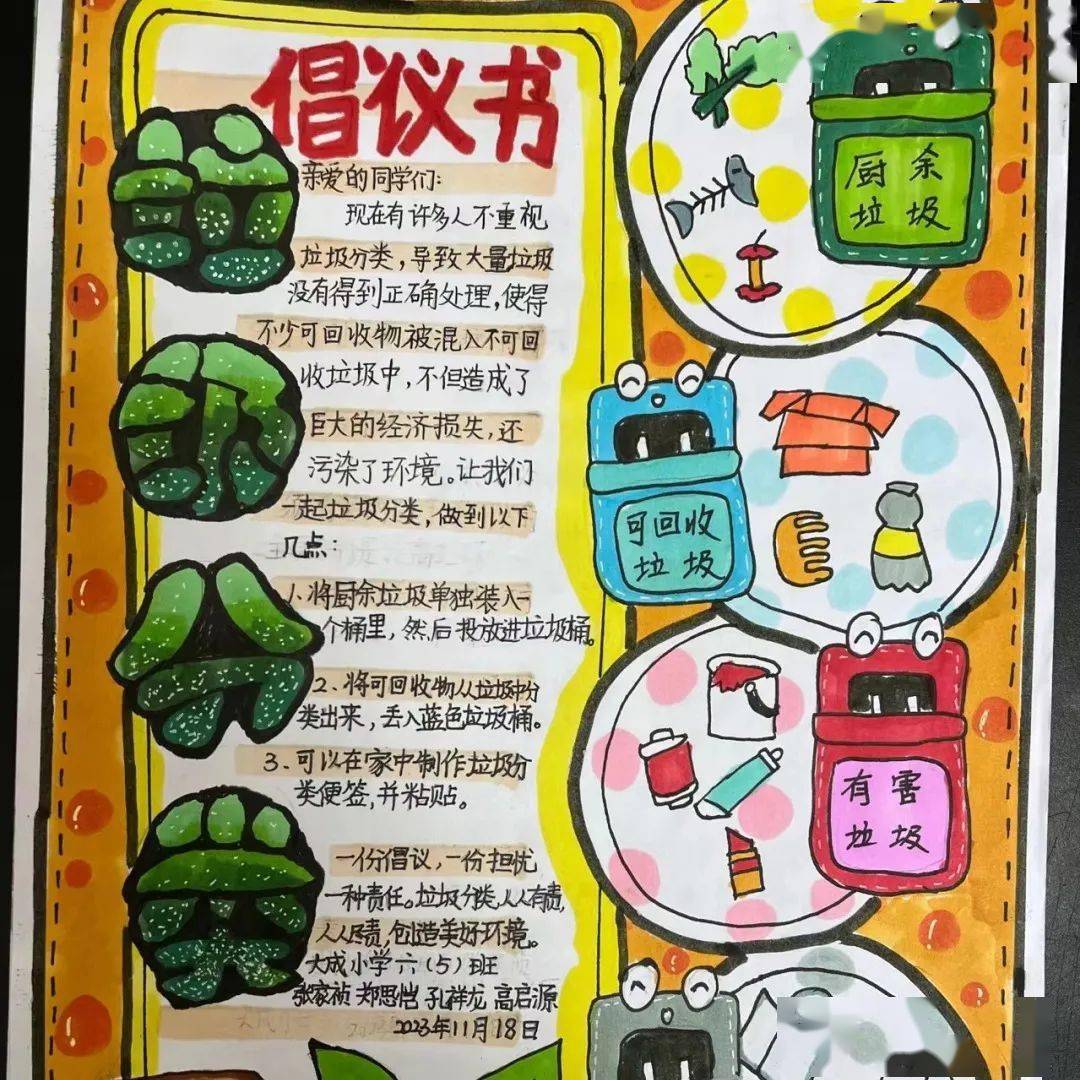 倡议书
垃
圾
分
类
亲爱的同学们:
现在有许多人不重视
垃圾分类,导致大量垃圾
没有得到正确处理,使得
不少可回收物被混入不可回
收垃圾中,不但造成了
巨大的经济损失,还
污染了环境。让我们
一起垃圾分类,做到以下
几点:
1.将厨余垃圾单独装入一
个桶里,然后投放进垃圾桶。
2、将可回收物从垃圾中分
类出来,丢入蓝色垃圾桶。
3、可以在家中制作垃圾分
类便签,并粘贴。
一份倡议,一份担忧
一种责任。垃圾分类,人人有责,
人人尽责,创造美好环境。
大成小学六(5)班
张家祯 郑思恺 孔祥龙 高启源
2023年11月18日
厨余
垃圾
可回收
垃圾
有害
垃圾